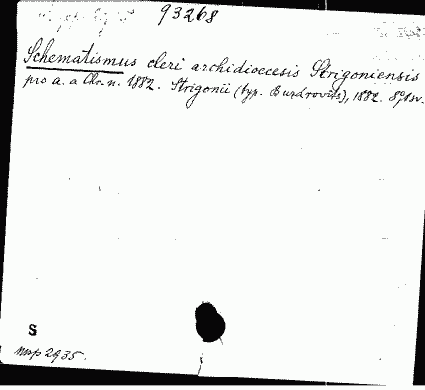 93268
Schematismus cleri archidioecesis Strigoniensis
pro a. a Chr. n. 1882. Strigonii (typ. Buzárovits), 1882. 8° 1 sv.
S
nwp 2935.